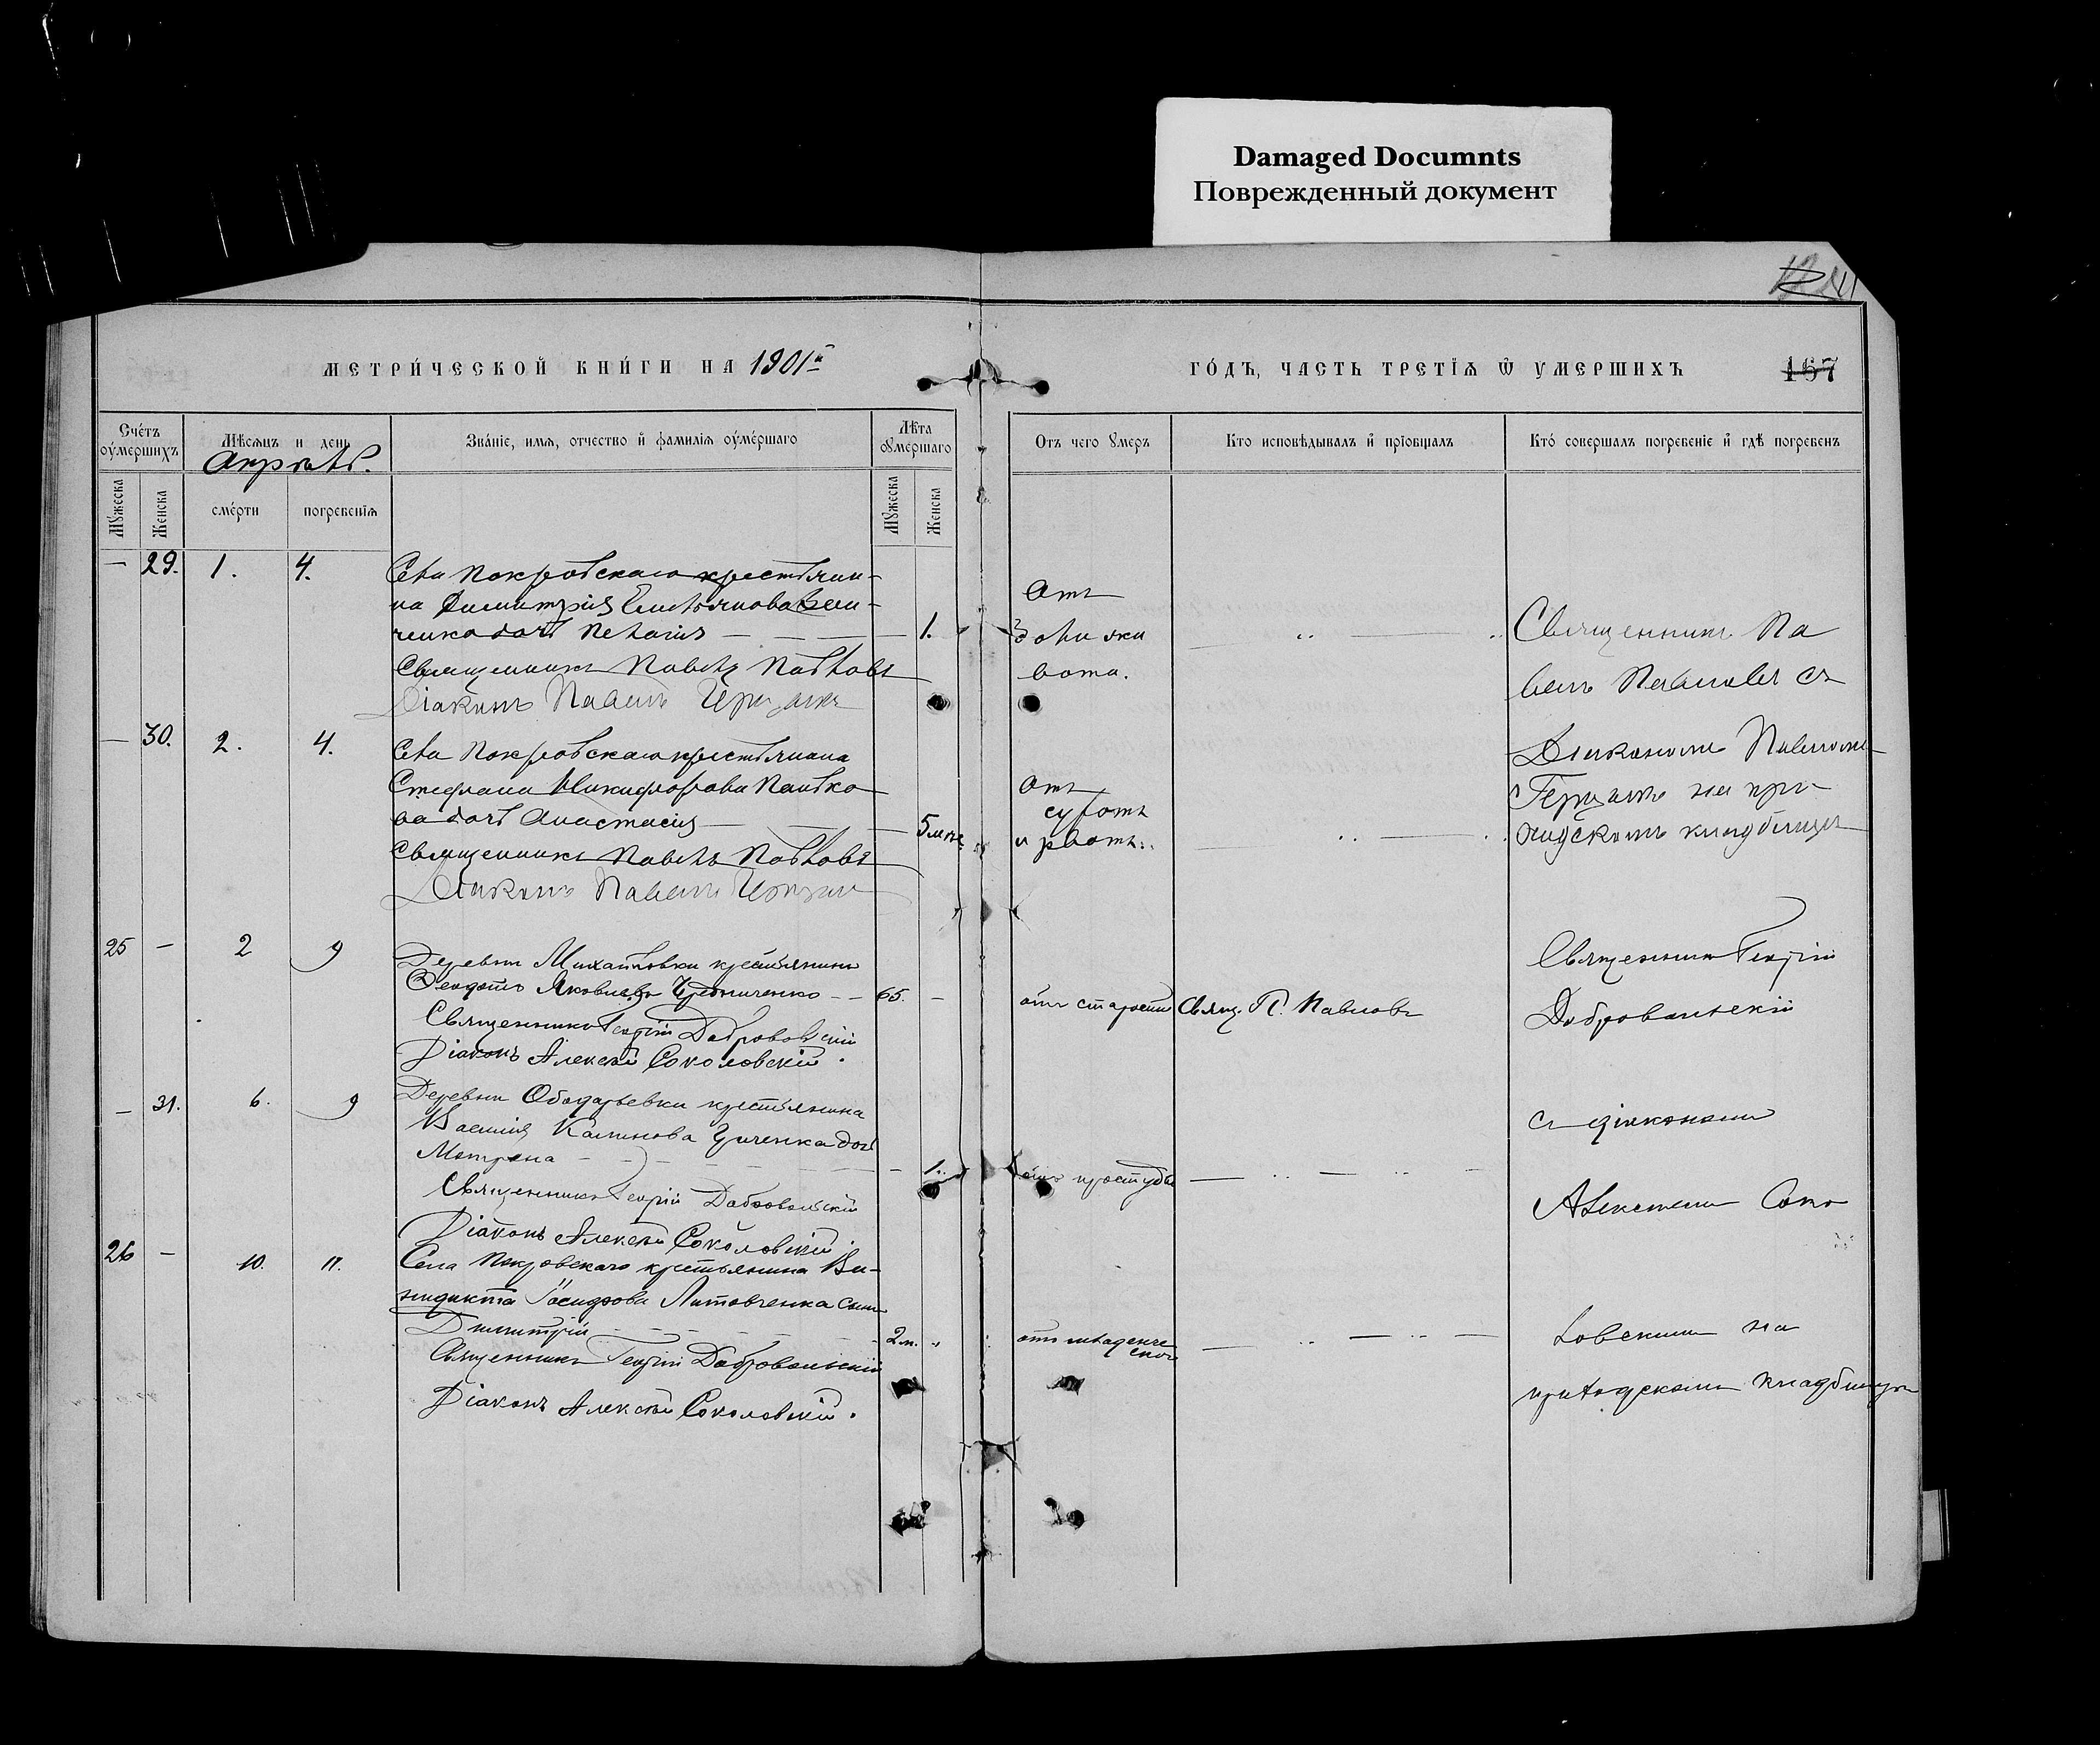 Damaged Documnts
Поврежденный документ
МЕТРИ́ЧЕСКОЙ КНИ́ГИ НА 1901й
ГО́ДЪ, ЧАСТЬ ТРЕТІѦ Ѿ УМЕРШИХЪ
167
Счéтъ оумершихъ
Мѣсяцъ и день
Апрѣль.
Звáніе, имя, отчество й фамилія оумéршаго
Лѣта оумершаго
Отъ чего умеръ
Кто исповѣдывалъ й пріобщалъ
Ктó совершалъ погребеніе й гдѣ погребенъ
Мужеска
Женска
смéрти
погребенія
Мужеска
Женска
— 29. 1. 4.
Села Покровскаго крестьяни-
на Димитрія Емельянова
дочь Пелагія — — — 1.
Священникъ Павелъ Павловъ
Діаконъ Павелъ
Отъ
боли жи
вота.
Священникъ Па
велъ Павловъ съ
Діакономъ Павломъ
на при-
ходскомъ кладбищѣ
— 30. 2. 4.
Села Покровскаго крестьянина
Стефана Никифорова Панько
ва дочь Анастасія — — 5 мѣс.
Священникъ Павелъ Павловъ
Діаконъ Павелъ
Отъ
и рвоты.
25 — 2 9
Деревни Михайловки крестьянинъ
Феодотъ Яковлевъ Чередниченко — — 65. —
Священникъ Георгій Добровольскій
Діаконъ Алексѣй Соколовскій.
отъ старости
Свящ. П. Павловъ
Священникъ Георгій
Добровольскій
съ діакономъ
Алексѣемъ Соко
ловскимъ на
приходскомъ кладбищѣ
— 31. 6. 9
Деревни крестьянина
Василія дочь
Матрона — 1.
Священникъ Георгій Добровольскій
Діаконъ Алексѣй Соколовскій.
отъ простуды
26 — 10. 11.
Села Покровскаго крестьянина Ве-
недикта Іосифова Литовченка сынъ
Димитрій 2 м. "
Священникъ Георгій Добровольскій
Діаконъ Алексѣй Соколовскій.
отъ младенче
ской